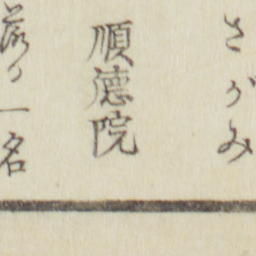 さがみ
順德院
一名